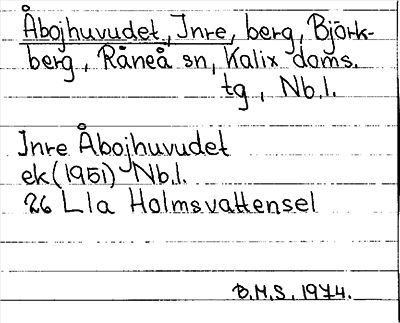 Åbojhuvudet, Inre, berg, Björk-
berg, Råneå sn, Kalix doms.
tg, Nb.l.
Inre Åbojhuvudet
ek (1951) Nb.l.
26 L1a Holmsvattensel
B.M.S. 1974.